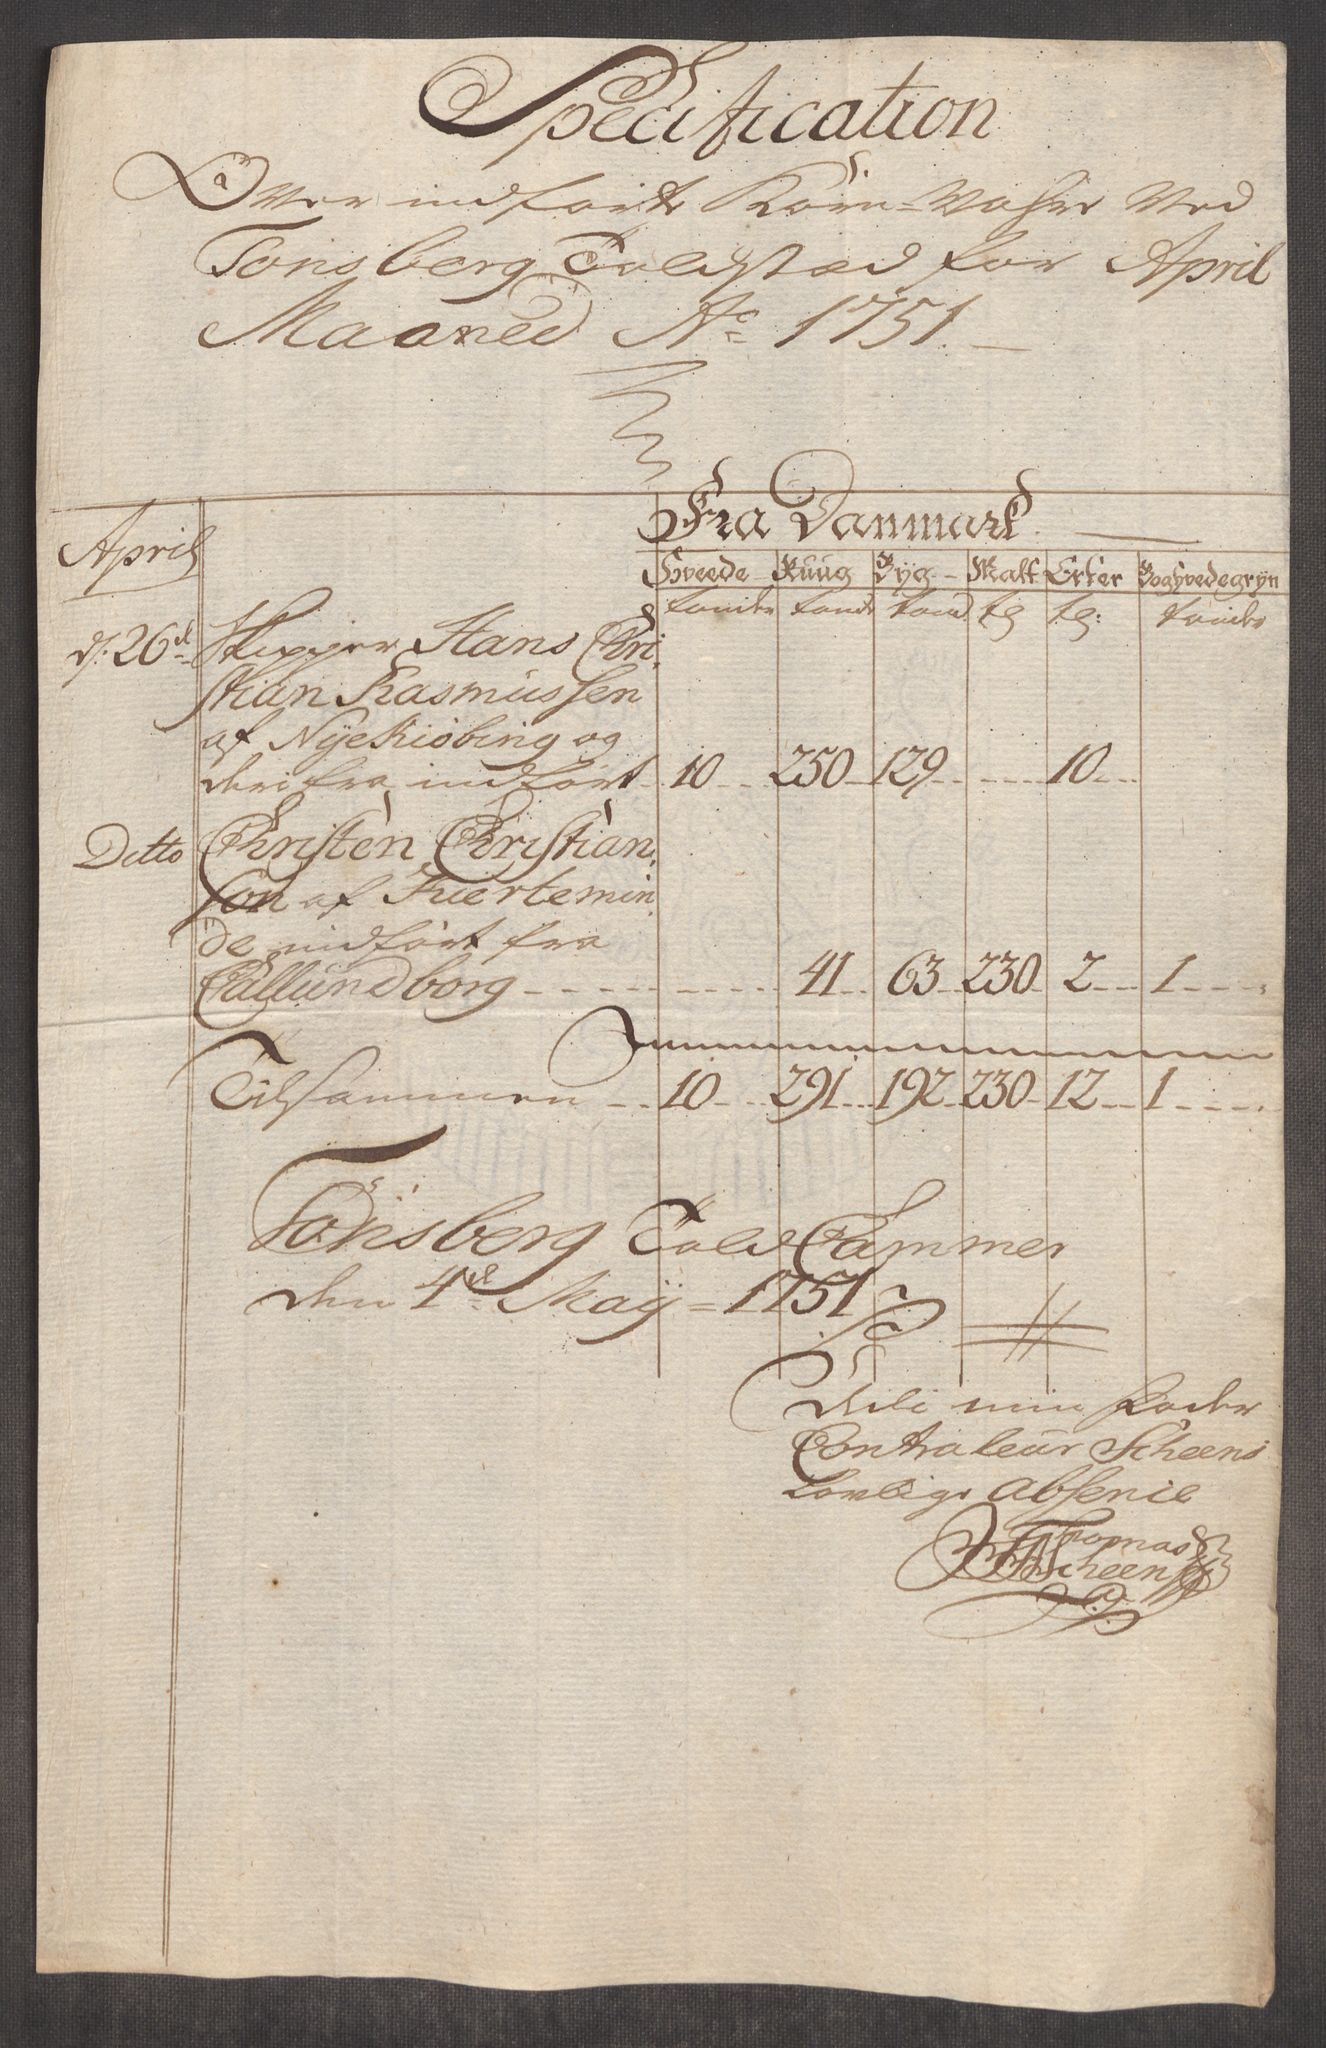 Specification
Over indförte Körn-Vahre Ved
Tønsberg Toldstæd for April
Maaned Ao 1751.
April
Fra Danmark
Hveede Ruug Byg Malt Erter Boghvedegryn
tønder tønde tønd tø tø: tønder
d: 26de Skipper Hans Chri
stian Rasmussen
af Nyekiöbing og
derifra indfört 10 250 129 10
Ditto Christen Christian
son af Kiertemin
de indfört fra
Callundborg 41 63 230 2 1
Tilsammen 10 291 192 230 12 1
Tönsberg Told Cammer
den 4de Maÿ 1751
udi min Fader
Contraleur Scheens
lovlige absence
Thomas
Scheen